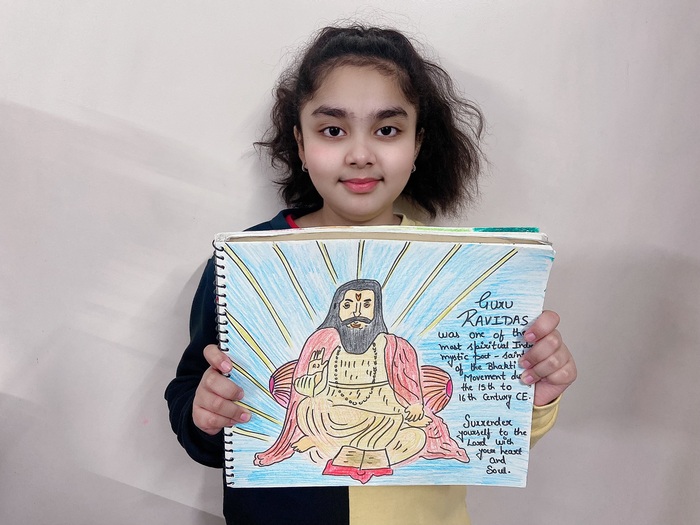 Guru
RAVIDAS
was one of the
most spiritual
mystic poet - saint
of the Bhakti
Movement
the 15th to
16th Century CE.
Surrender
yourself to the
Lord with
your heart
and
Soul.